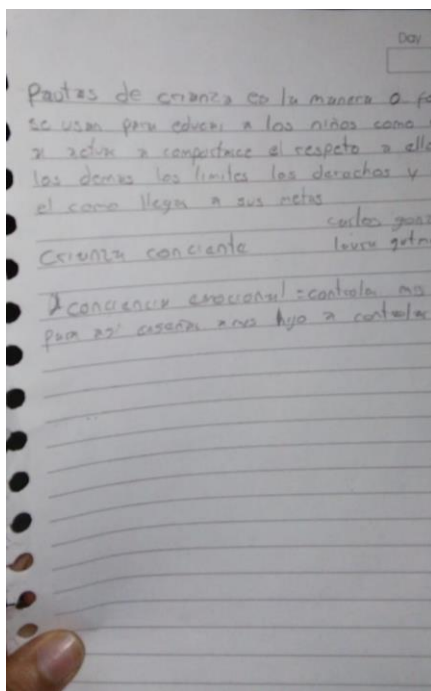 Day
Pautas de crianza es la manera o
se usan para educar a los niños como
a actuar a comportarce el respeto a
los demas los limites los derechos y
el como llegar a sus metas
carlos
Crianza conciente laura
conciencia emocional = controlar mis
para asi enseñar a mis hijo a controlar